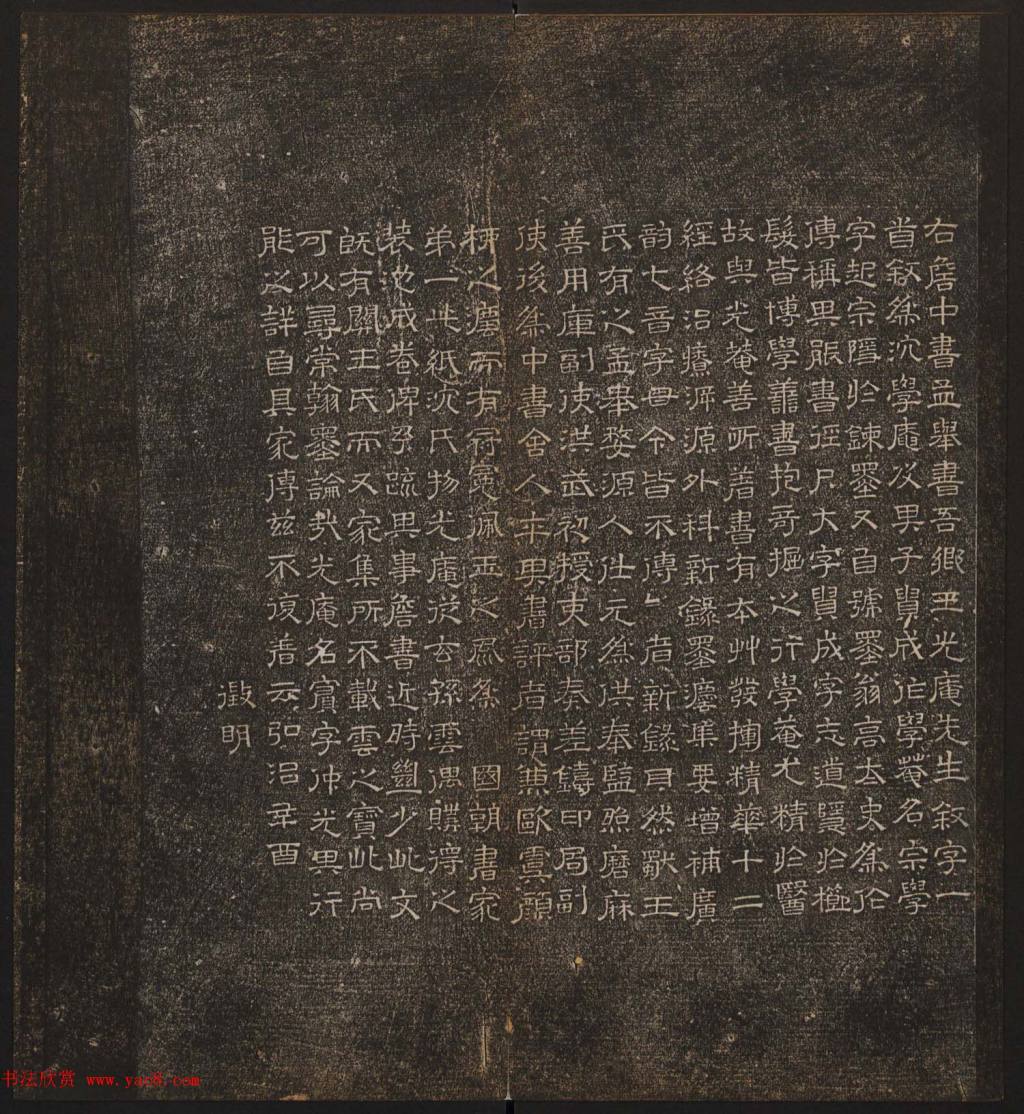 右詹中書孟舉書吾鄉王光庵先生叙字一
首叙為沈學庵及男子貟成作學菴名宗學
字起宗隱於鍊墨又自號墨翁高太史為伦
傳稱其眂書徑尺大字貟成字志道隱於
髮皆博學善書抱奇掘之行學菴尤精於醫
故與光菴善所著書有本艸發揮精華十二
經絡治療泝源外科新錄墨塵集要增補廣
韵七音字母今皆不傳傳者新錄耳然獻王
氏有之孟舉婺源人仕元為供奉監照磨麻
善用庫副使洪武初授吏部奏差鑄印局副
使後為中書舍人卒其書評者謂兼歐虞顏
栁之塵而有冠冕佩玉之風為 國朝書家
弟一此紙沈氏物光庵從玄孫雲偶購得之
裝池成卷俾予疏其事詹書近時尠少此文
既有關王氏而又家集所不載雲之寶此尚
可以尋常翰墨論哉光庵名賓字仲光其行
能之詳自具家傳兹不復著云弘治辛酉
徵明
书法欣赏 www.yac8.com